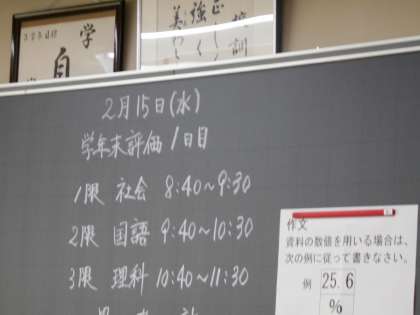 学
自
校訓
正しく
強く
美わし
2月15日(水)
学年末評価 1日目
1限 社会 8:40~9:30
2限 国語 9:40~10:30
3限 理科 10:40~11:30
作文
資料の数値を用いる場合は、
次の例に従って書きなさい。
例 25.6
%